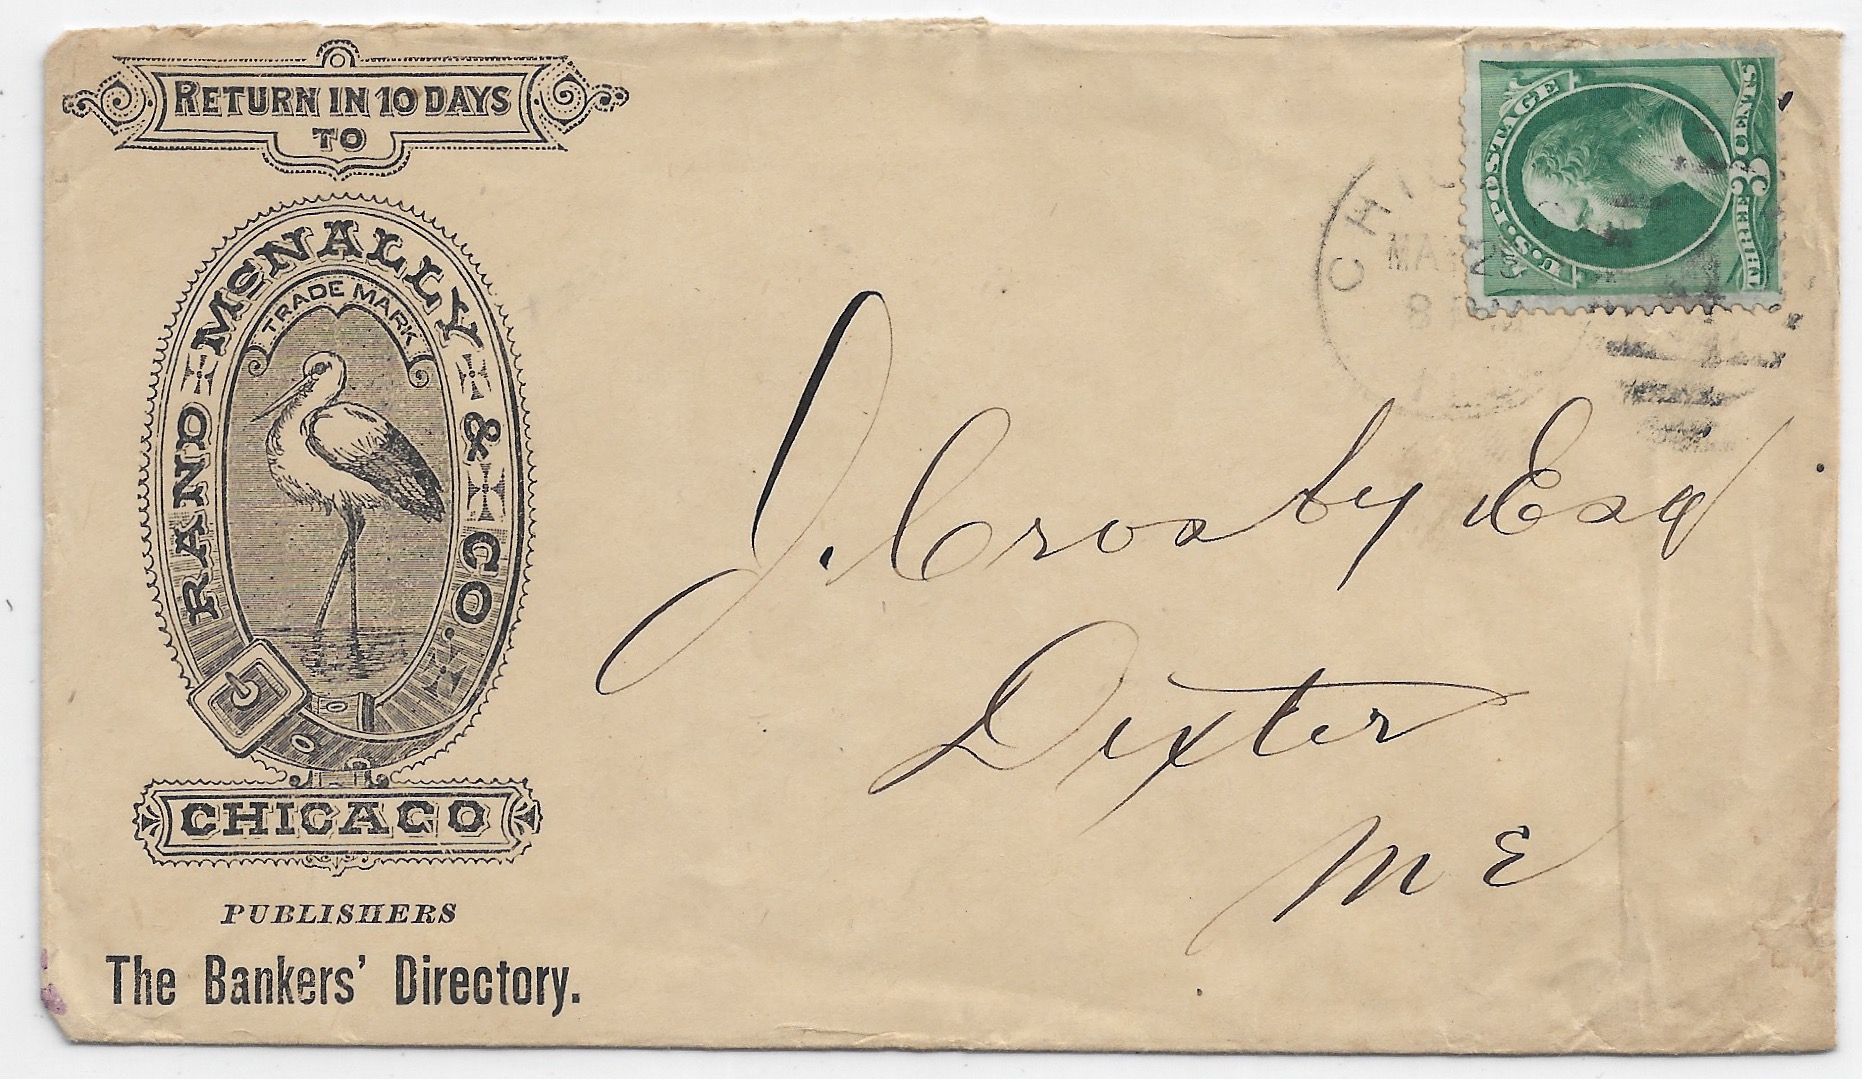 RETURN IN 10 DAYS
TO
RAND MCNALLY & CO.
TRADE MARK
CHICAGO
PUBLISHERS
The Bankers' Directory.
U.S. POSTAGE
THREE 3 CENTS
CHIC
8
J. Crosby Esq
Dexter
ME